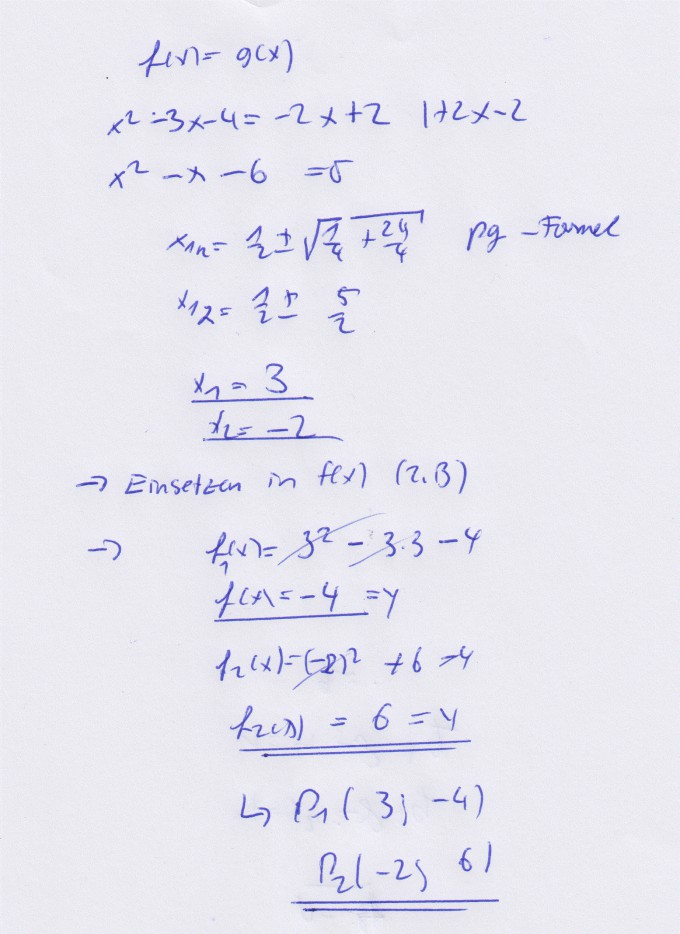 f(x) = g(x)
x² - 3x - 4 = -2x + 2 | +2x - 2
x² - x - 6 = 0
x₁₂ = 1/2 ± √(1/4 + 24/4) pq - Formel
x₁₂ = 1/2 ± 5/2
x₁ = 3
x₂ = -2
→ Einsetzen in f(x) (z.B)
→ f₁(x) = 3² - 3·3 - 4
f(x) = -4 = y
f₂(x) = (-2)² + 6 - 4
f₂(x) = 6 = y
↳ P₁ ( 3; -4)
P₂ ( -2; 6)